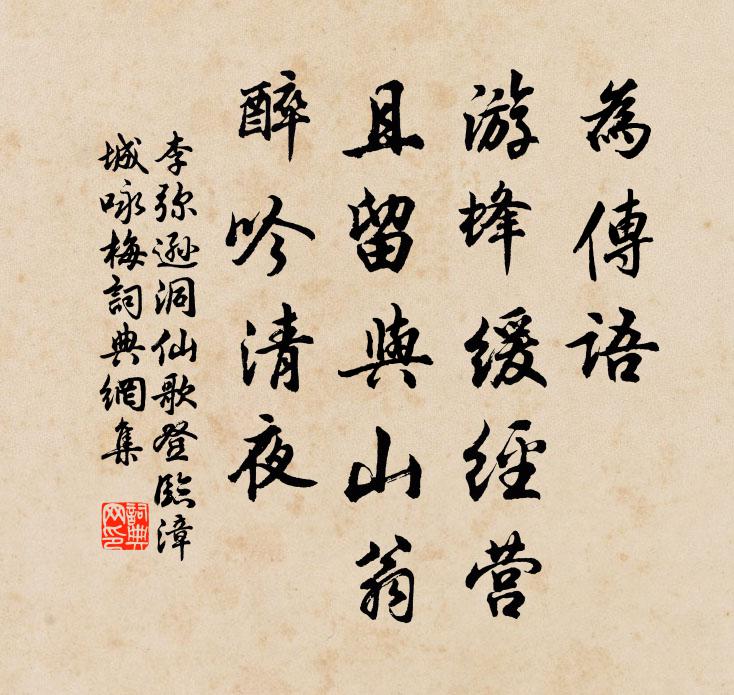 為傳語
游蜂緩經营
且留與山翁
醉吟清夜
李弥遜洞仙歌登臨漳
城咏梅詞典網集
詞典
网印